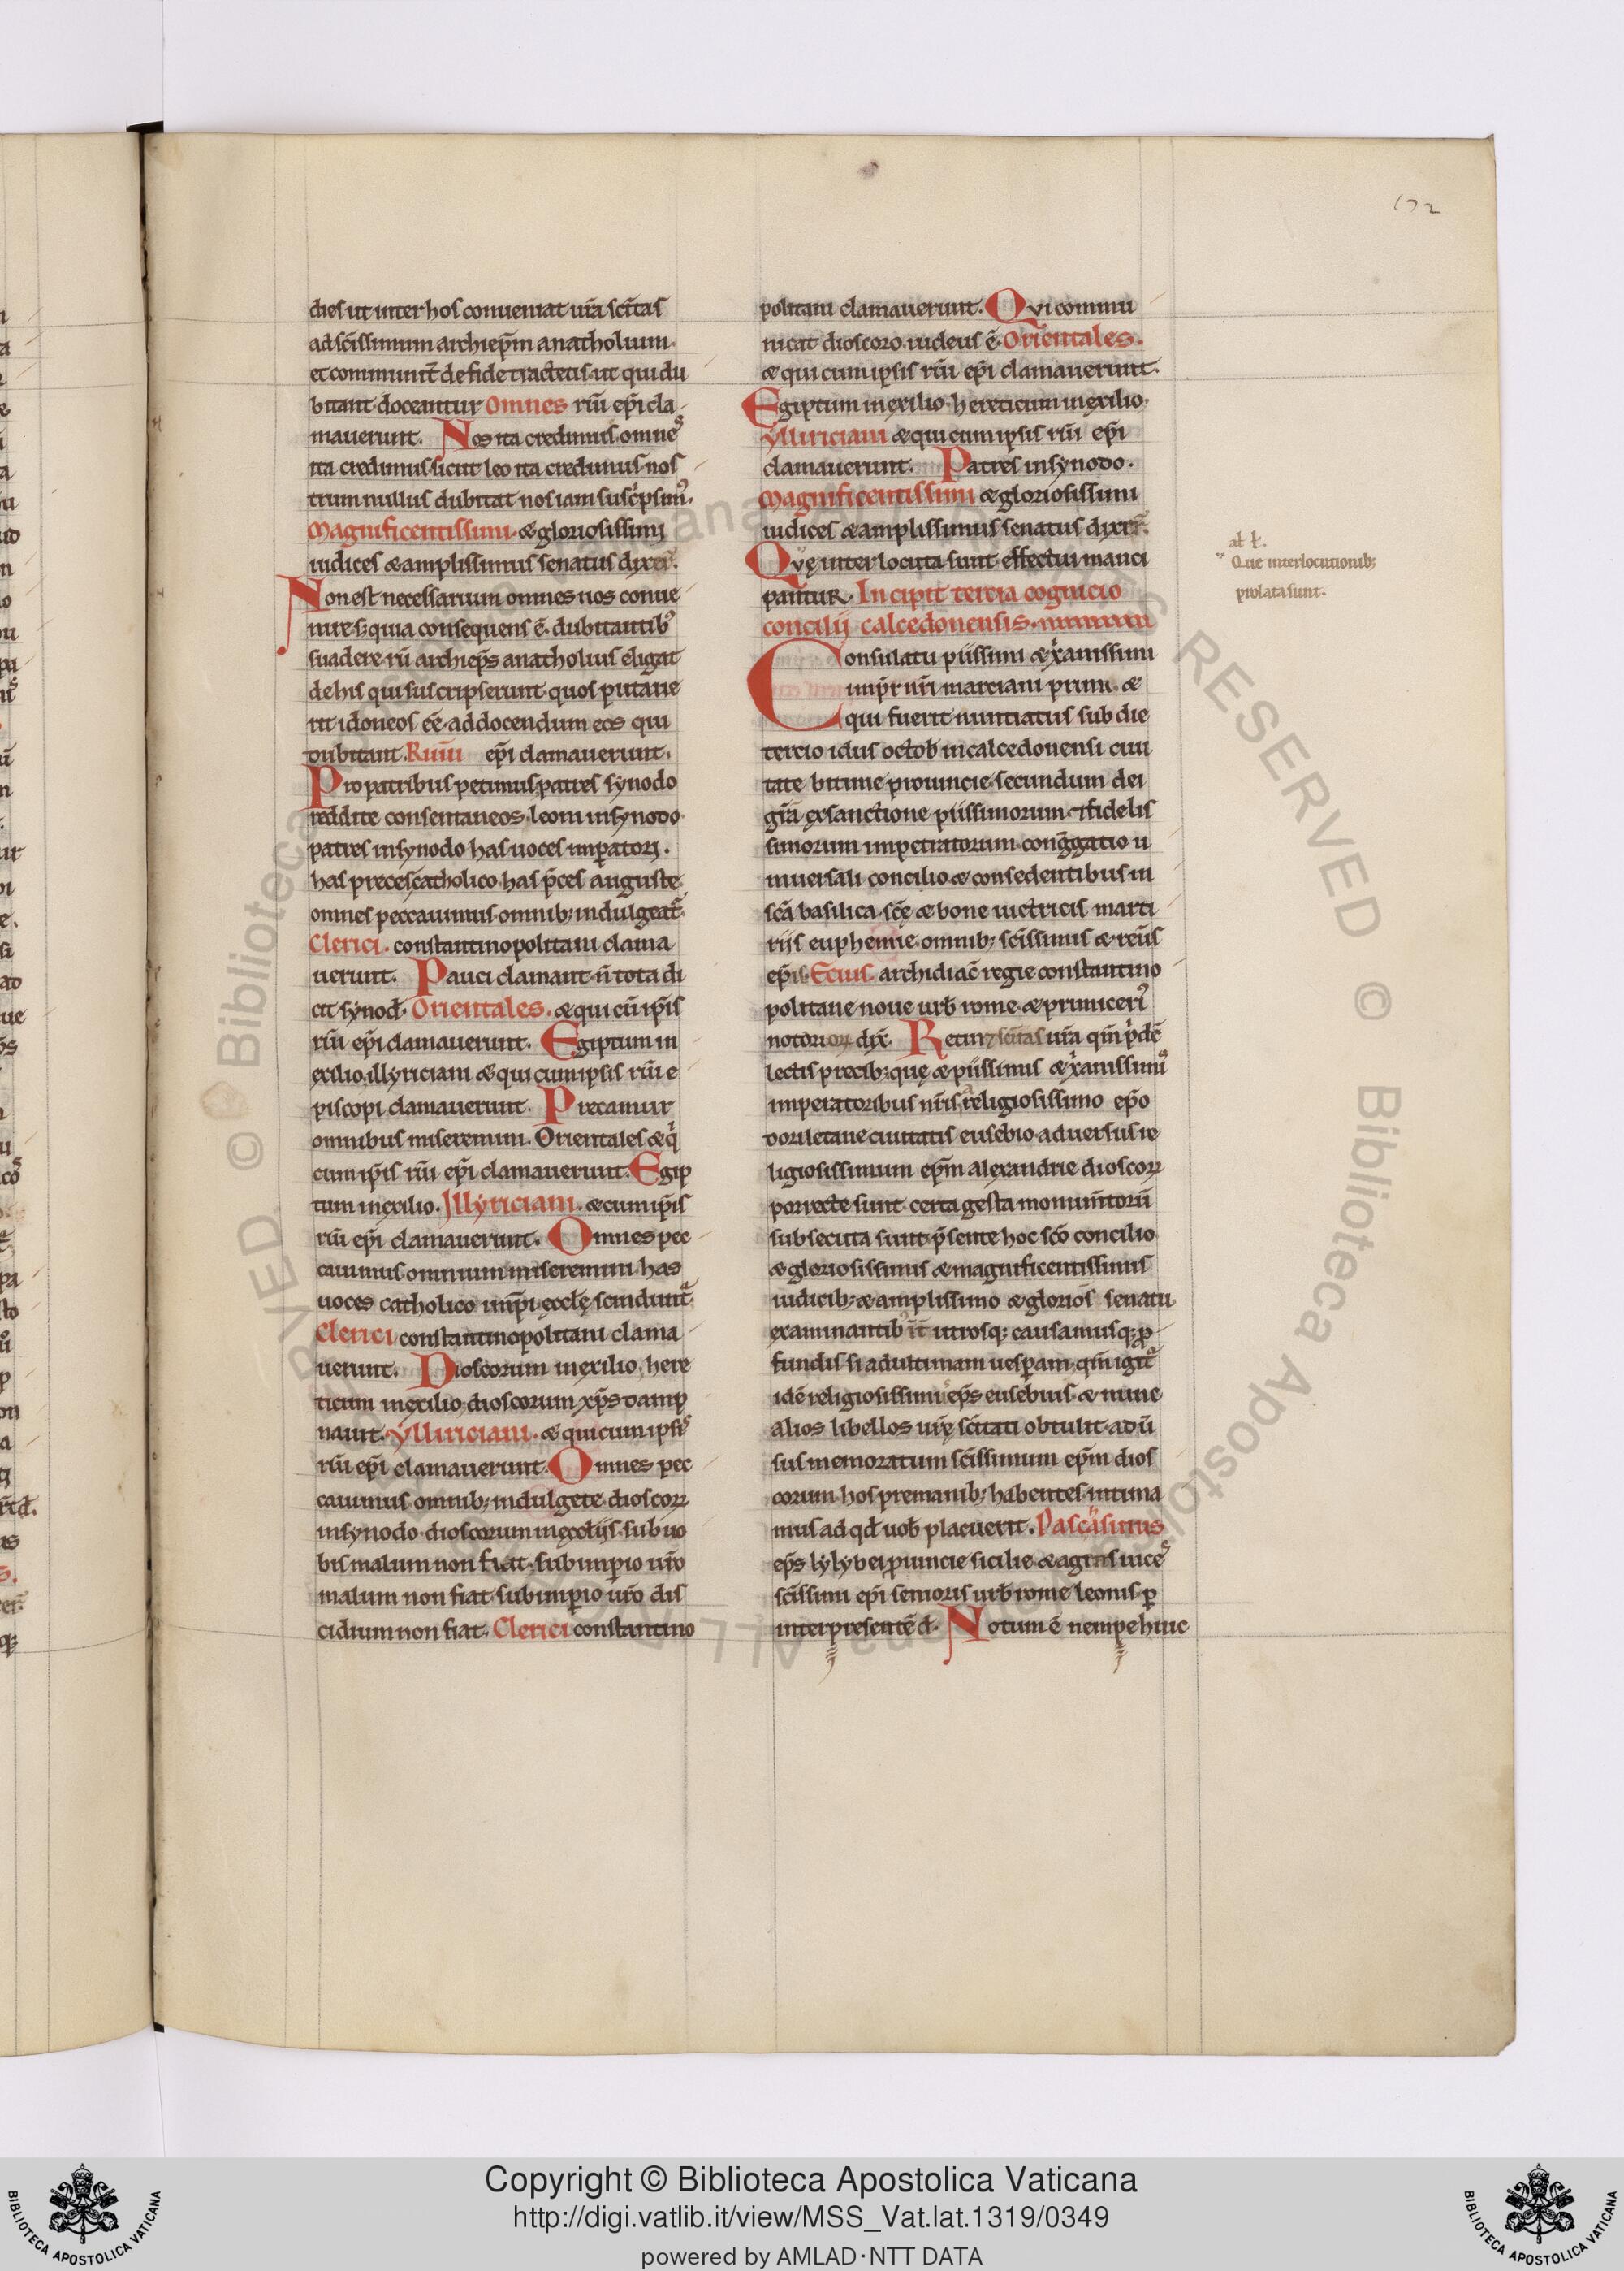 172
dies ut inter hos conueniat ur̄a sc̄itas
ad sc̄issimum archiep̄m anatholium.
et communit̄ de fide tractetis. ut qui du
bitant doceantur Omnes rm̄i ep̄i cla
mauerunt. Nos ita credimus. omnes
ita credimus. sicut leo ita credimus. nos
trum nullus dubitat nos iam suscͥpsim᷒.
Magnificentissimi. & gloriosissimi
iudices & amplissimus senatus dixer̄.
Non est necessarium omnes nos conue
nire. s; quia consequens ē. dubitantib᷒
suadere. rm̄ archiep̄s anatholius eligat
de his qui suscripserunt quos putaue
rit idoneos eē. ad docendum eos qui
dubitant. Rm̄i ep̄i clamauerunt.
Pro patribus petimus. patres synodo
reddite consentaneos. leoni in synodo
patres in synodo has uoces imp̄atori.
has preces catholico. has p̄ces auguste.
omnes peccauimus. omnib; indulgeat̄.
Clerici. constantinopolitani clama
uerunt. Pauci clamant. n̄ tota di
cit synod᷒. Orientales. & qui cū ip̄is
rm̄i ep̄i clamauerunt. Egiptum in
exilio. illyriciani & qui cum ipsis rm̄i e
piscopi clamauerunt. Precamur
omnibus miseremini. Orientales & qͥ
cum ip̄is rm̄i ep̄i clamauerunt. Egip
tum in exilio. Jllyriciani. & cum ip̄is
rm̄i ep̄i clamauerunt. Omnes pec
cauimus omnium miseremini. has
uoces catholico imp̄i. eccl̄ę scindunt᷒
Clerici constantinopolitani clama
uerunt. Dioscorum in exilio. here
ticum in exilio. dioscorum xp̄s damp
nauit. Ylliriciani. & qui cum ipsis
rm̄i ep̄i clamauerunt. Omnes pec
cauimus omnib; indulgete. dioscorꝝ
in synodo. dioscorum in eccl̄iis. sub uo
bis malum non fiat. sub imperio ur̄o
malum non fiat. sub imperio ur̄o dis
cidium non fiat. Clerici constantino
politani clamauerunt. Qvi commu
nicat dioscoro. iudeus ē. Orientales.
& qui cum ipsis rm̄i ep̄i clamauerunt.
Egiptum in exilio. hereticum in exilio.
Ylliriciani & qui cum ipsis rm̄i ep̄i
clamauerunt. Patres in synodo.
Magnificentissimi & gloriosissimi
iudices & amplissimus senatus dixer̄.
Qvę inter locuta sunt effectui manci
pantur. Incipit tercia cognicio
concilij calcedonensis.
Consulatu piissimi & xͥanissimi
imp̄r. nr̄i marciani primi. &
qui fuerit nuntiatus sub die
tercio idus octob̄ in calcedonensi ciui
tate bitinie prouincie. secundum dei
gr̄a. ex sanctione piissimorum ⁊ fidelis
simorum imperatorum. congͣgatio u
niuersali concilio & consedentibus in
sc̄a basilica. sc̄ę & bone uictricis marti
riis euphemie. omnib; sc̄issimis & reū̄s
ep̄is. Ecius. archidiac̄ regie constantino
politane noue urb̄ rome. & primiceri᷒
notoriorꝝ dix̄. Retin& sc̄itas ur̄a qm̄ pͥdē
lectis precib; quę & piissimis & xͥanissimi᷒
imperatoribus nr̄is religiosissimo ep̄o
doriletane ciuitatis eusebio. aduersus re
ligiosissimum ep̄m alexandrie dioscorꝝ
porrecte sunt. certa gesta monum̄torū
subsecuta sunt. p̄sente hoc sc̄o concilio
& gloriosissimis & magnificentissimis
iudicib; & amplissimo & glorios̄ senatu.
examinantib᷒ īt̄ utrosq; causam usq; ꝓ
fundis si ad ultimam uesp̄am. qm̄ igit᷒
idē religiosissimi ep̄s eusebius. & nunc
alios libellos ur̄ę sc̄itati obtulit. adū
sus memoratum sc̄issimum ep̄m dios
corum. hos pre manib; habentes intima
mus ad qd̄ uob̄ placuerit. Pascasinus
ep̄s lylybei prouincie sicilie. & agens uices
sc̄issimi ep̄i senioris urb̄ rome leonis. ꝑ
interpresentē d̄. Notum ē nempe huic
al̄ ł.
Que interlocutionib;
prolata sunt.
Copyright © Biblioteca Apostolica Vaticana
http://digi.vatlib.it/view/MSS_Vat.lat.1319/0349
powered by AMLAD·NTT DATA